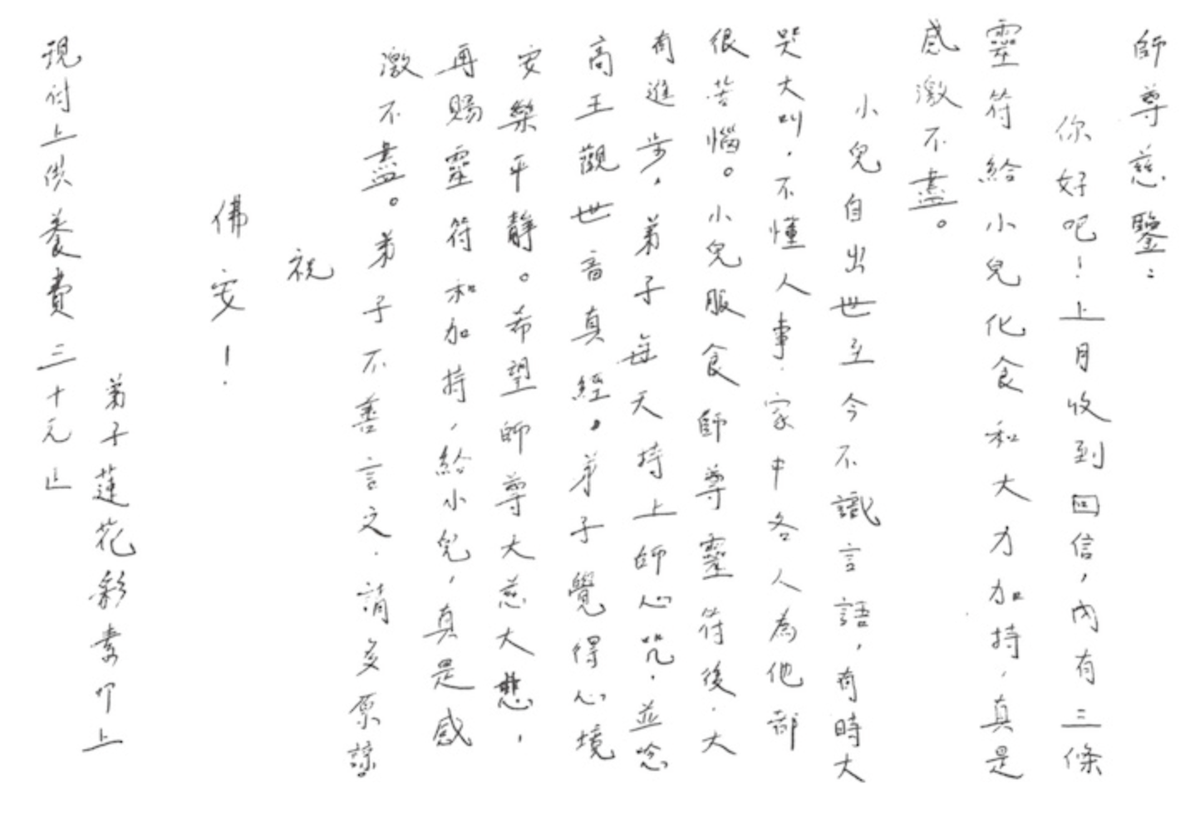 師尊慈鑒：
你好吧！上月收到回信，內有三條
靈符給小兒化食和大力加持，真是
感激不盡。
小兒自出世至今不識言語，有時大
哭大叫，不懂人事，家中各人為他都
很苦惱。小兒服食師尊靈符後，大
有進步，弟子每天持上師心咒，並唸
高王觀世音真經，弟子覺得心境
安樂平靜。希望師尊大慈大悲，
再賜靈符和加持，給小兒，真是感
激不盡。弟子不善言文，請多原諒。
祝
佛安！
弟子蓮花彩素叩上
現付上供養費三十元正